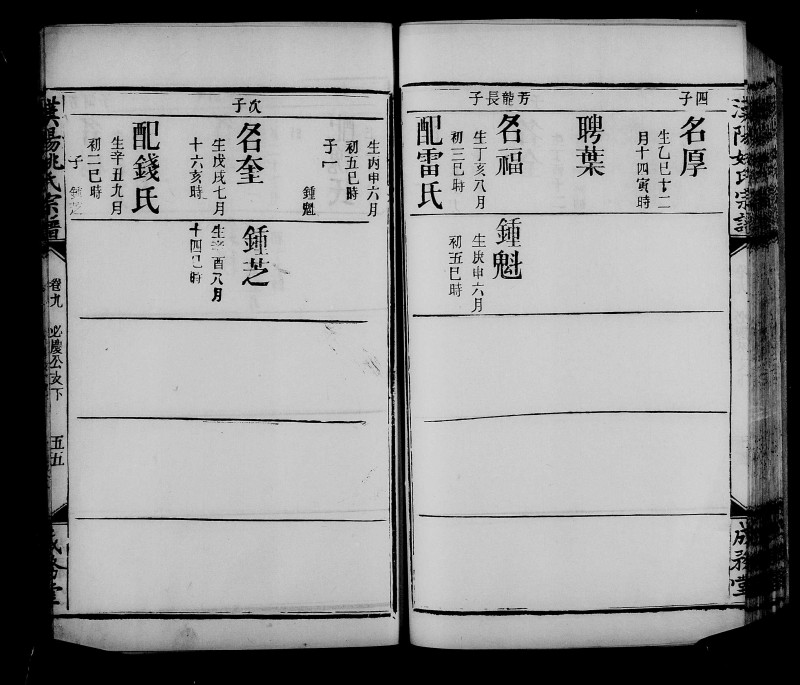 漢陽姚氏宗譜
成務堂
四子
名厚
生乙巳十二
月十四寅時
聘葉
芳龍長子
名福
生丁亥八月
初三巳時
配雷氏
鍾魁
生庚申六月
初五巳時
生丙申六月
初五巳時
子一
鍾魁
次子
名奎
生戊戌七月
十六亥時
配錢氏
生辛丑九月
初二巳時
子
鍾芝
鍾芝
生辛酉八月
十四巳時
漢陽姚氏宗譜
卷九
必慶公支下
五五
成務堂